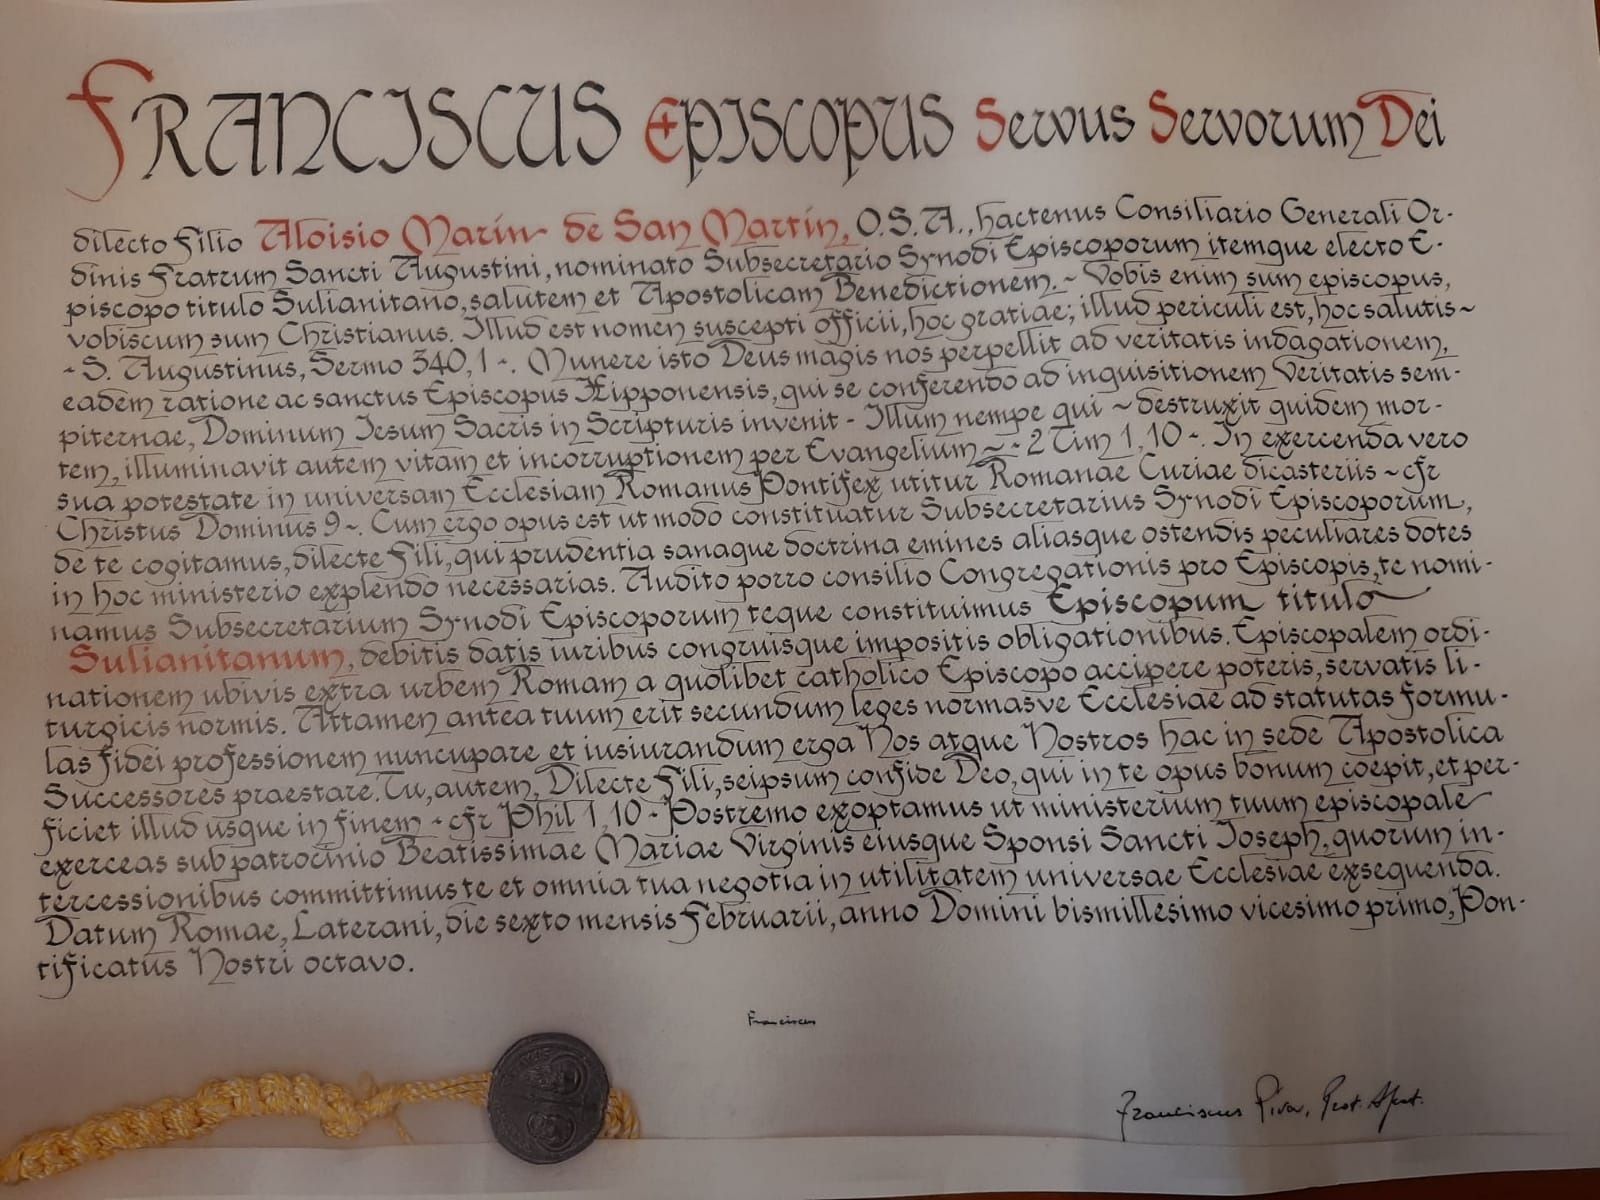 Franciscus Episcopus Servus Servorum Dei
dilecto Filio Aloisio Marín de San Martín, O.S.A., hactenus Consiliario Generali Or-
dinis Fratrum Sancti Augustini, nominato Subsecretario Synodi Episcoporum itemque electo E-
piscopo titulo Sulianitano, salutem et Apostolicam Benedictionem. ~ Vobis enim sum episcopus,
vobiscum sum Christianus. Illud est nomen suscepti officii, hoc gratiae; illud periculi est, hoc salutis ~
~ S. Augustinus, Sermo 340, 1 ~. Munere isto Deus magis nos perpellit ad veritatis indagationem,
eadem ratione ac sanctus Episcopus Hipponensis, qui se conferendo ad inquisitionem Veritatis sem-
piternae, Dominum Iesum Sacris in Scripturis invenit - Illum nempe qui ~ destruxit quidem mor-
tem, illuminavit autem vitam et incorruptionem per Evangelium ~ - 2 Tim 1, 10 ~. In exercenda vero
sua potestate in universam Ecclesiam Romanus Pontifex utitur Romanae Curiae dicasteriis ~ cfr
Christus Dominus 9 ~. Cum ergo opus est ut modo constituatur Subsecretarius Synodi Episcoporum,
de te cogitamus, dilecte Fili, qui prudentia sanaque doctrina emines aliasque ostendis peculiares dotes
in hoc ministerio explendo necessarias. Audito porro consilio Congregationis pro Episcopis, te nomi-
namus Subsecretarium Synodi Episcoporum teque constituimus Episcopum titulo
Sulianitanum, debitis datis iuribus congruisque impositis obligationibus. Episcopalem ordi-
nationem ubivis extra urbem Romam a quolibet catholico Episcopo accipere poteris, servatis li-
turgicis normis. Attamen antea tuum erit secundum leges normasve Ecclesiae ad statutas formu-
las fidei professionem nuncupare et iusiurandum erga Nos atque Nostros hac in sede Apostolica
Successores praestare. Tu, autem, Dilecte Fili, seipsum confide Deo, qui in te opus bonum coepit, et per-
ficiet illud usque in finem - cfr Phil 1, 10 - Postremo exoptamus ut ministerium tuum episcopale
exerceas sub patrocinio Beatissimae Mariae Virginis eiusque Sponsi Sancti Joseph, quorum in-
tercessionibus committimus te et omnia tua negotia in utilitatem universae Ecclesiae exsequenda.
Datum Romae, Laterani, die sexto mensis Februarii, anno Domini bismillesimo vicesimo primo, Pon-
tificatus Nostri octavo.
Franciscus
Franciscus Piva, Prot. Apost.